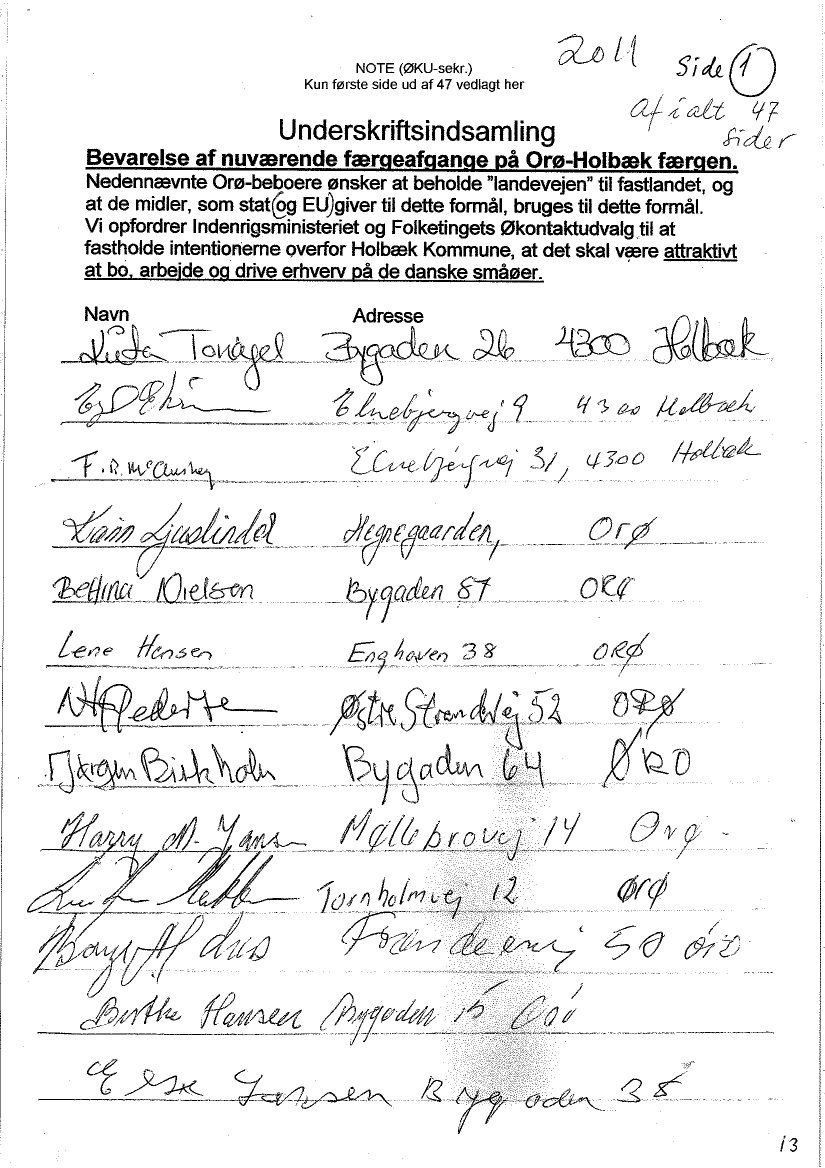 2011
Side 1
NOTE (ØKU-sekr.)
Kun første side ud af 47 vedlagt her
af ialt 47
sider
Underskriftsindsamling
Bevarelse af nuværende færgeafgange på Orø-Holbæk færgen.
Nedennævnte Orø-beboere ønsker at beholde "landevejen" til fastlandet, og
at de midler, som stat (og EU) giver til dette formål, bruges til dette formål.
Vi opfordrer Indenrigsministeriet og Folketingets Økontaktudvalg til at
fastholde intentionerne overfor Holbæk Kommune, at det skal være attraktivt
at bo, arbejde og drive erhverv på de danske småøer.
Navn Adresse
Bygaden 26 4300 Holbæk
Elnebjergvej 9 4300 Holbæk
F.R. Elnebjergvej 31, 4300 Holbæk
Hegnegaarden, Orø
Bettina Nielsen Bygaden 87 ORØ
Lene Hansen Enghaven 38 ORØ
Østre Strandvej 52 ORØ
Jørgen Birkholm Bygaden 64 ØRO
Harry Møllebrovej 14 Orø
Tornholmvej 12 ørø
50
Birthe Hansen Bygaden 15
Else Jansen Bygaden 38
13